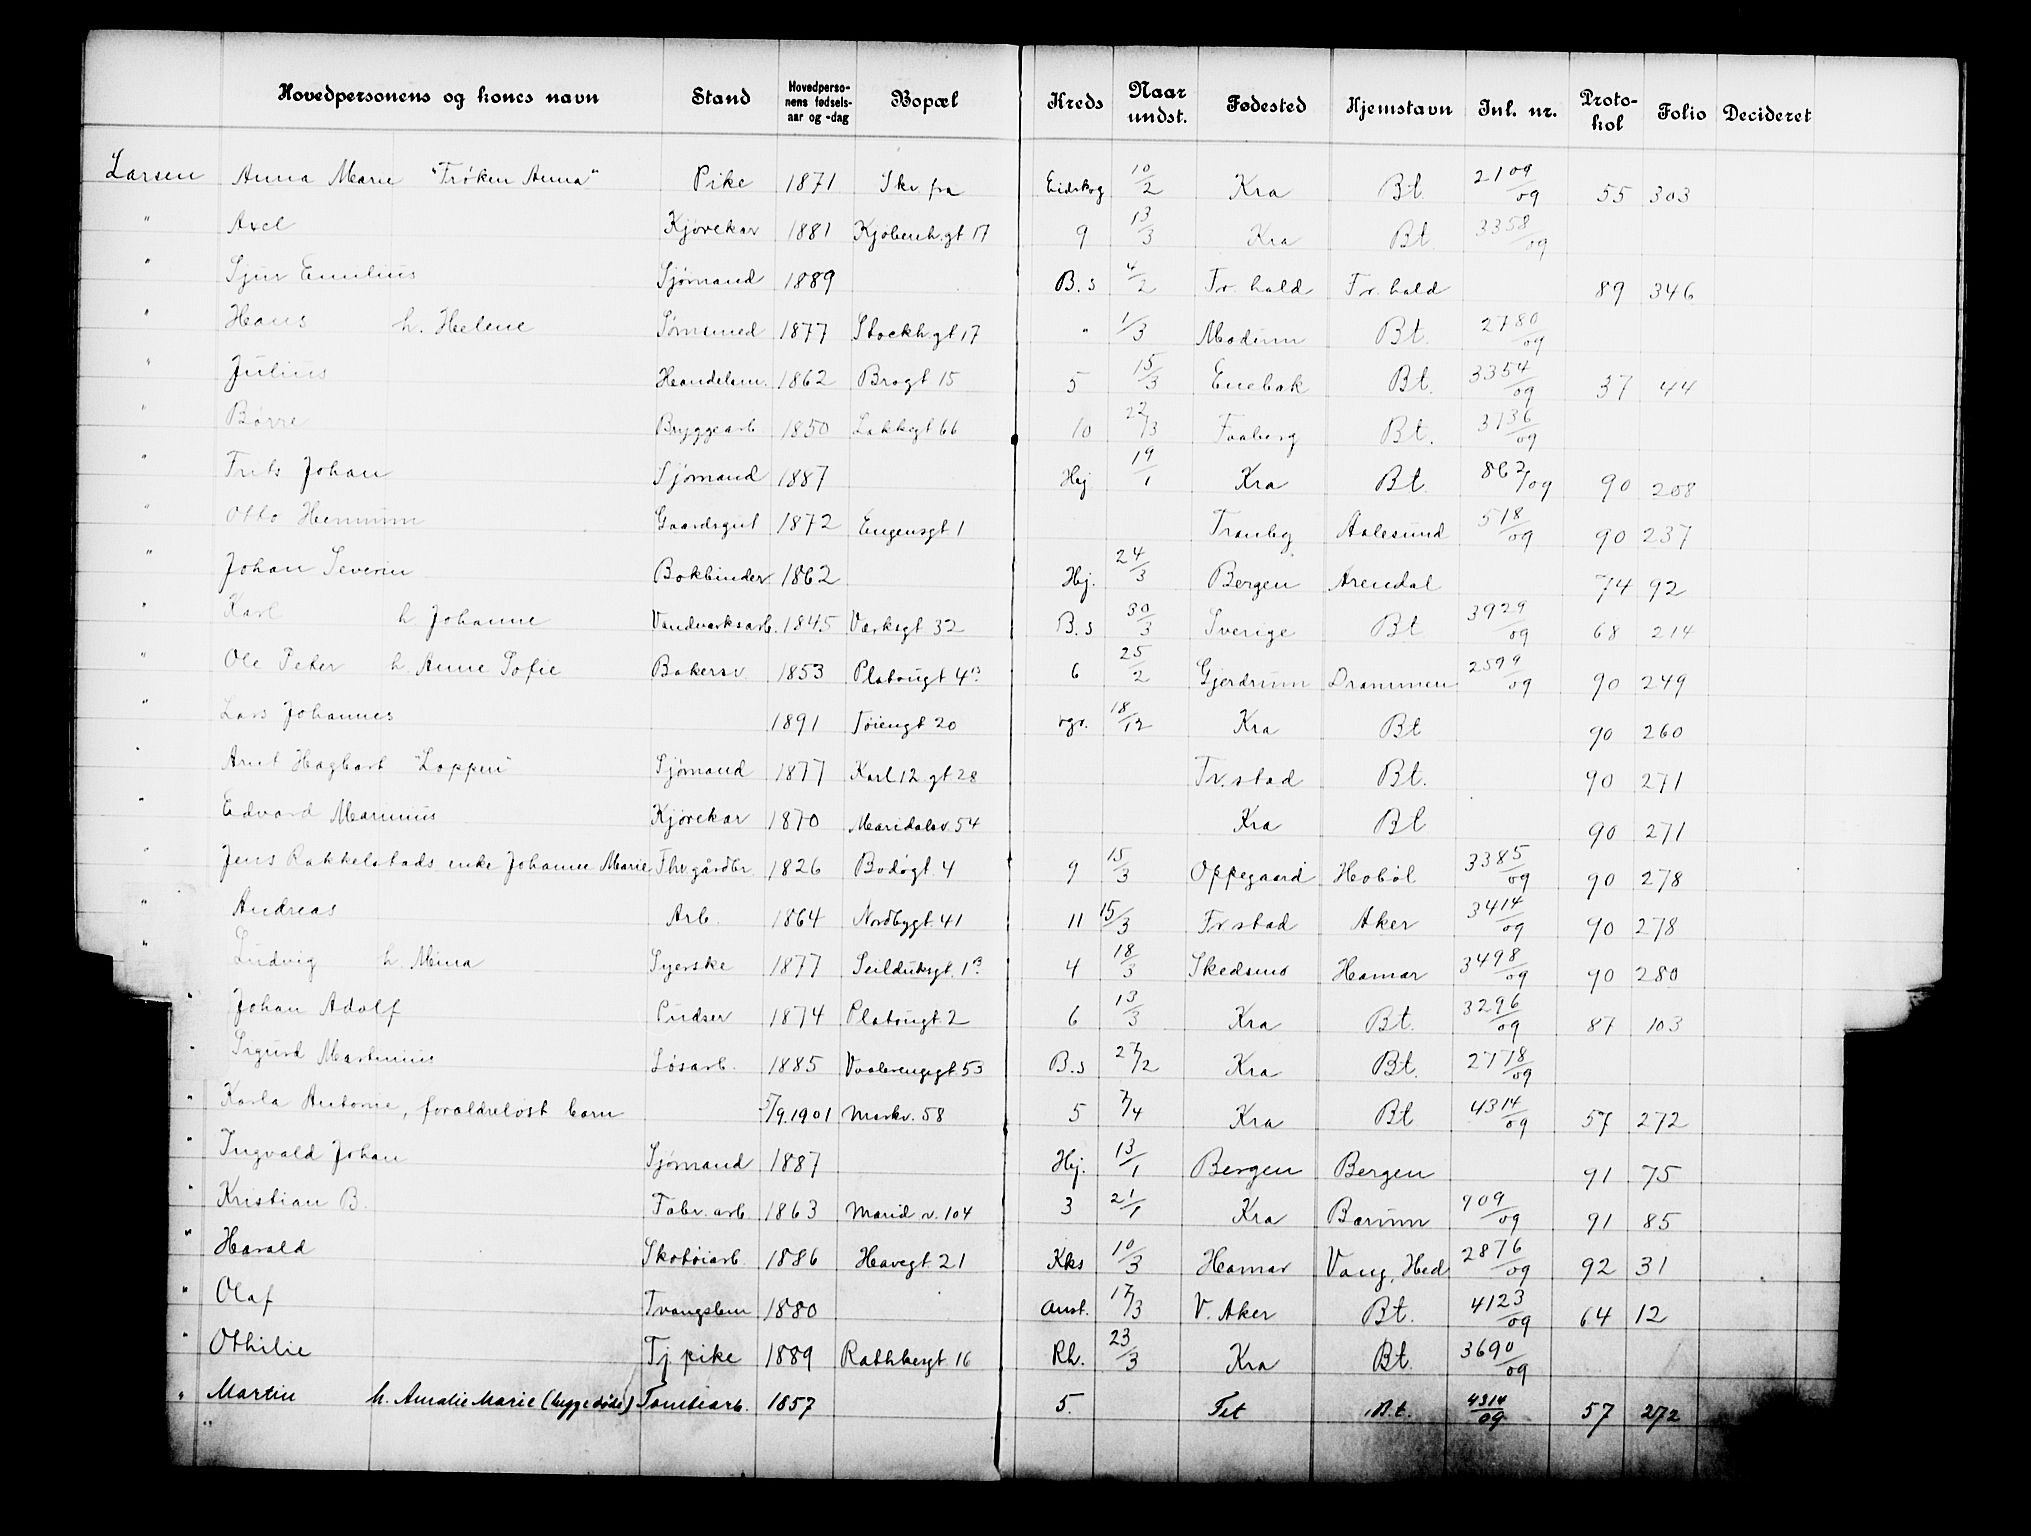 Hovedpersonens og kones navn Stand Hovedpersonens fødselsaar og -dag Bopæl Kreds Naar undst. Fødested Hjemstavn Inl. nr. Protokol Folio Decideret
Larsen Anna Marie "Frøken Anna" Pike 1871 Skr fra Eidskog 10/2 Kra Bt 2109/09 55 303
" Axel Kjørekar 1881 Kjøbenh.gt 17 9 13/3 Kra Bt. 3358/09
" Sjur Emilius Sjømand 1889 B.s 4/2 Fr. hald Fr. hald 89 346
" Hans h. Helene Sømsmed 1877 Stockh.gt 17 " 1/3 Modum Bt. 2780/09
" Julius Handelsm. 1862 Brogt 15 5 15/3 Enebak Bt. 3354/09 37 44
" Børre Bryggearb 1850 Lakkegt 66 10 22/3 Faaberg Bt. 3136/09
" Frits Johan Sjømand 1887 Hej 19/1 Kra Bt. 862/09 90 208
" Otto Hennum Gaardsgut 1872 Eugensgt 1 Tranby Aalesund 518/09 90 237
" Johan Severin Bokbinder 1862 Hej. 24/3 Bergen Arendal 74 92
" Karl h Johanne Vandværksarb. 1845 Værksgt 32 B.s 30/3 Sverige Bt 3929/09 68 214
" Ole Peter h. Anne Sofie Bakersv. 1853 Platougt 4B 6 25/2 Gjerdrum Drammen 2599/09 90 249
" Lars Johannes 1891 Tøiengt 20 vgr. 18/12 Kra Bt 90 260
" Arnt Hagbart "Loppen" Sjømand 1877 Karl 12 gt 28 Fr.stad Bt. 90 271
" Edvard Marinius Kjørekar 1870 Maridalsv. 54 Kra Bt 90 271
" Jens Rakkelstads enke Johanne Marie Fhv gårdbr 1826 Bodøgt 4 9 15/3 Oppegaard Hobøl 3385/09 90 278
" Andreas Arb. 1864 Nordbygt. 41 11 15/3 Fr.stad Aker 3414/09 90 278
" Ludvig h. Mina Syerske 1877 Seilduksgt. 1B 4 18/3 Skedsmo Hamar 3498/09 90 280
" Johan Adolf Pudser 1874 Platougt. 2 6 13/3 Kra Bt. 3296/09 87 103
" Sigurd Martinius Løsarb. 1885 Vaalerengsgt. 53 B.s 27/2 Kra Bt. 2778/09
" Karla Antonie, foraldreløst barn 5/9.1901 Markv. 58 5 7/4 Kra Bt 4314/09 57 272
" Ingvald Johan Sjømand 1887 Hej. 13/1 Bergen Bergen 91 75
" Kristian B. Fabr. arb. 1863 Marid v. 104 3 21/1 Kra Bærum 909/09 91 85
" Harald Skotøiarb. 1886 Havegt 21 Kks 10/3 Hamar Vang, Hed 2876/09 92 31
" Olaf Tvangslem 1880 Anst. 17/3 V. Aker Bt. 4123/09 64 12
" Othilie Tj pike 1889 Rathkesgt 16 Rh. 23/3 Kra Bt. 3690/09
" Martin h. Amalie Marie (begge døde) Tomtearb. 1857 5. Fet B.t. 4314/09 57 272
"